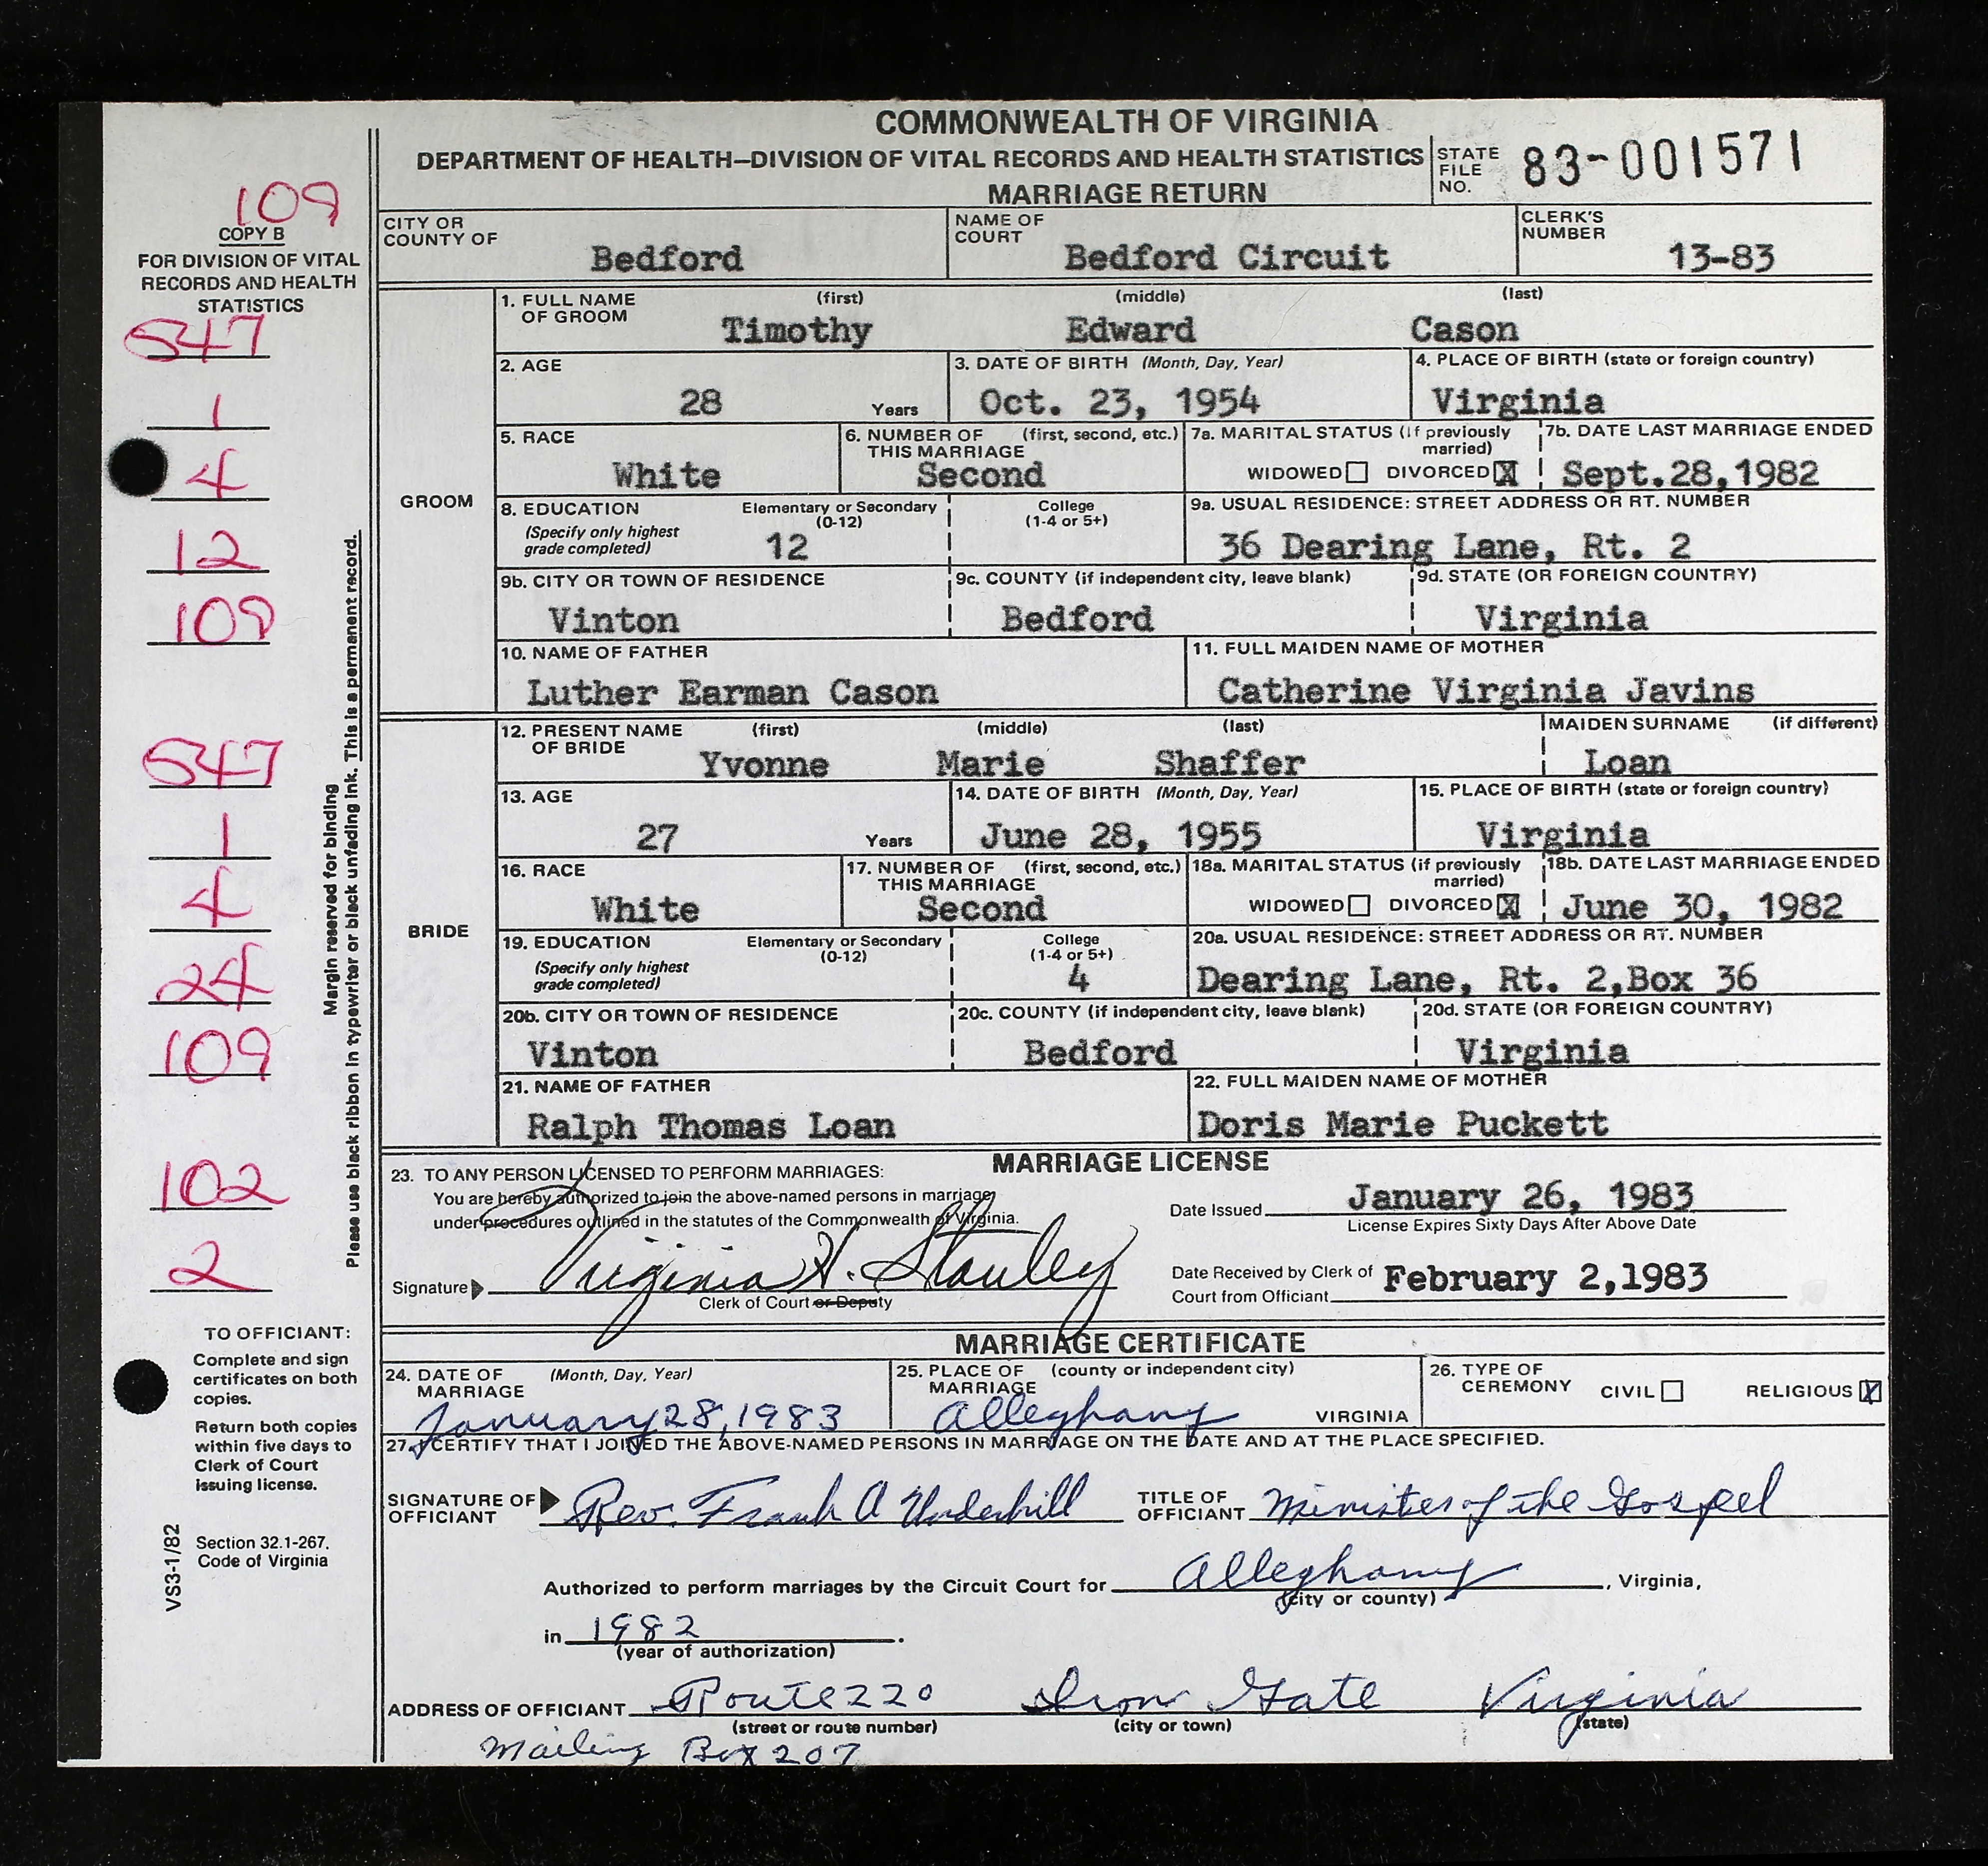 COMMONWEALTH OF VIRGINIA
DEPARTMENT OF HEALTH—DIVISION OF VITAL RECORDS AND HEALTH STATISTICS
MARRIAGE RETURN
STATE FILE NO. 83-001571
109
COPY B
FOR DIVISION OF VITAL
RECORDS AND HEALTH
STATISTICS
547
1
4
12
109
547
1
4
24
109
102
2
Margin reserved for binding
Please use black ribbon in typewriter or black unfading ink. This is a permanent record.
TO OFFICIANT:
Complete and sign
certificates on both
copies.
Return both copies
within five days to
Clerk of Court
issuing license.
Section 32.1-267,
Code of Virginia
VS3-1/82
CITY OR COUNTY OF Bedford
NAME OF COURT Bedford Circuit
CLERK'S NUMBER 13-83
GROOM
1. FULL NAME OF GROOM (first) (middle) (last)
Timothy Edward Cason
2. AGE 28 Years
3. DATE OF BIRTH (Month, Day, Year) Oct. 23, 1954
4. PLACE OF BIRTH (state or foreign country) Virginia
5. RACE White
6. NUMBER OF THIS MARRIAGE (first, second, etc.) Second
7a. MARITAL STATUS (if previously married) WIDOWED DIVORCED X
7b. DATE LAST MARRIAGE ENDED Sept.28,1982
8. EDUCATION (Specify only highest grade completed) Elementary or Secondary (0-12) 12 College (1-4 or 5+)
9a. USUAL RESIDENCE: STREET ADDRESS OR RT. NUMBER 36 Dearing Lane, Rt. 2
9b. CITY OR TOWN OF RESIDENCE Vinton
9c. COUNTY (if independent city, leave blank) Bedford
9d. STATE (OR FOREIGN COUNTRY) Virginia
10. NAME OF FATHER Luther Earman Cason
11. FULL MAIDEN NAME OF MOTHER Catherine Virginia Javins
BRIDE
12. PRESENT NAME OF BRIDE (first) (middle) (last) MAIDEN SURNAME (if different)
Yvonne Marie Shaffer Loan
13. AGE 27 Years
14. DATE OF BIRTH (Month, Day, Year) June 28, 1955
15. PLACE OF BIRTH (state or foreign country) Virginia
16. RACE White
17. NUMBER OF THIS MARRIAGE (first, second, etc.) Second
18a. MARITAL STATUS (if previously married) WIDOWED DIVORCED X
18b. DATE LAST MARRIAGE ENDED June 30, 1982
19. EDUCATION (Specify only highest grade completed) Elementary or Secondary (0-12) College (1-4 or 5+) 4
20a. USUAL RESIDENCE: STREET ADDRESS OR RT. NUMBER Dearing Lane, Rt. 2,Box 36
20b. CITY OR TOWN OF RESIDENCE Vinton
20c. COUNTY (if independent city, leave blank) Bedford
20d. STATE (OR FOREIGN COUNTRY) Virginia
21. NAME OF FATHER Ralph Thomas Loan
22. FULL MAIDEN NAME OF MOTHER Doris Marie Puckett
MARRIAGE LICENSE
23. TO ANY PERSON LICENSED TO PERFORM MARRIAGES:
You are hereby authorized to join the above-named persons in marriage
under procedures outlined in the statutes of the Commonwealth of Virginia.
Date Issued January 26, 1983
License Expires Sixty Days After Above Date
Signature Virginia H. Stanley
Clerk of Court or Deputy
Date Received by Clerk of Court from Officiant February 2,1983
MARRIAGE CERTIFICATE
24. DATE OF MARRIAGE (Month, Day, Year) January 28, 1983
25. PLACE OF MARRIAGE (county or independent city) Alleghany VIRGINIA
26. TYPE OF CEREMONY CIVIL RELIGIOUS X
27. I CERTIFY THAT I JOINED THE ABOVE-NAMED PERSONS IN MARRIAGE ON THE DATE AND AT THE PLACE SPECIFIED.
SIGNATURE OF OFFICIANT Rev. Frank A Underhill
TITLE OF OFFICIANT Minister of the Gospel
Authorized to perform marriages by the Circuit Court for Alleghany, Virginia,
(city or county)
in 1982.
(year of authorization)
ADDRESS OF OFFICIANT Route 220 Iron Gate Virginia
(street or route number) (city or town) (state)
Mailing Box 207